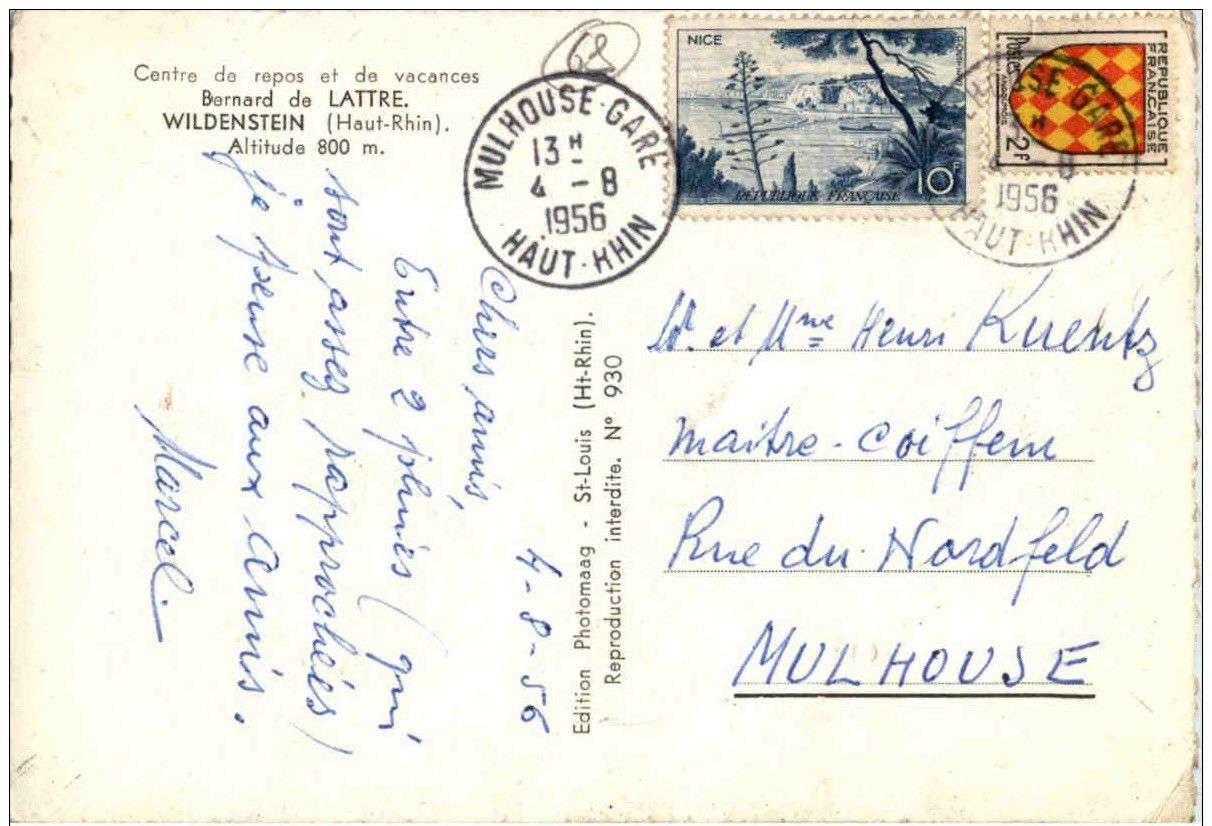 Centre de repos et de vacances
Bernard de LATTRE.
WILDENSTEIN (Haut-Rhin).
Altitude 800 m.
68
MULHOUSE-GARE
13 H
4 - 8
1956
HAUT-RHIN
NICE
10F
REPUBLIQUE FRANÇAISE
REPUBLIQUE
FRANÇAISE
Postes
ANGOUMOIS
2F
SE-GARE
8
1956
HAUT-RHIN
4-8-56
Chers amis,
Entre 2 pluies (qui
sont assez rapprochées)
je pense aux amis.
Marcel.
Edition Photomaag - St-Louis (Ht-Rhin).
Reproduction interdite. N° 930
Mr. et Mme Henri Kuentz
Maitre-Coiffeur
Rue du Nordfeld
MULHOUSE